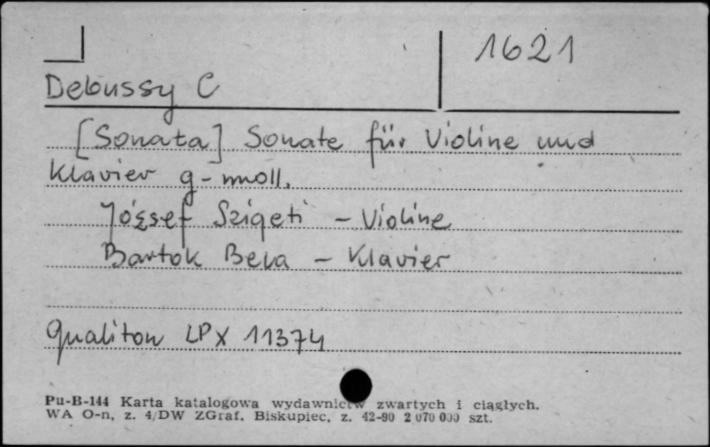 1621
Debussy C
[Sonata] Sonate für Violine und
Klavier g-moll.
József Szigeti - Violine
Bartok Bela - Klavier
Qualiton LPX 11374
Pu-B-144 Karta katalogowa wydawnictw zwartych i ciągłych.
WA O-n, z. 4/DW ZGraf. Biskupiec, z. 42-90 2 070 000 szt.